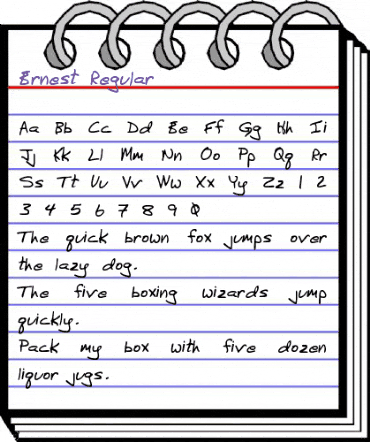 Ernest Regular
Aa Bb Cc Dd Ee Ff Gg Hh Ii
Jj Kk Ll Mm Nn Oo Pp Qq Rr
Ss Tt Uu Vv Ww Xx Yy Zz 1 2
3 4 5 6 7 8 9 0
The quick brown fox jumps over
the lazy dog.
The five boxing wizards jump
quickly.
Pack my box with five dozen
liquor jugs.